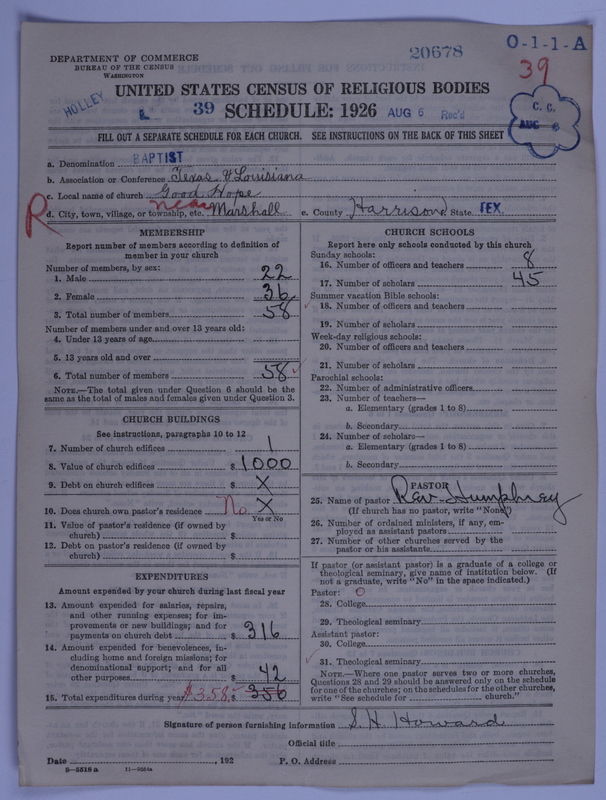 20678
O-1-1-A
39
DEPARTMENT OF COMMERCE
BUREAU OF THE CENSUS
WASHINGTON
UNITED STATES CENSUS OF RELIGIOUS BODIES
HOLLEY
39 SCHEDULE: 1926 AUG 6 Rec'd
C. C.
AUG 6
FILL OUT A SEPARATE SCHEDULE FOR EACH CHURCH. SEE INSTRUCTIONS ON THE BACK OF THIS SHEET
a. Denomination BAPTIST
b. Association or Conference Texas & Louisiana
c. Local name of church Good Hope
R d. City, town, village, or township, etc. near Marshall e. County Harrison State TEX.
MEMBERSHIP
Report number of members according to definition of
member in your church
Number of members, by sex:
1. Male 22
2. Female 36
3. Total number of members 58
Number of members under and over 13 years old:
4. Under 13 years of age
5. 13 years old and over
6. Total number of members 58
NOTE.—The total given under Question 6 should be the
same as the total of males and females given under Question 3.
CHURCH BUILDINGS
See instructions, paragraphs 10 to 12
7. Number of church edifices 1
8. Value of church edifices $ 1000
9. Debt on church edifices $ X
10. Does church own pastor's residence No X
Yes or No
11. Value of pastor's residence (if owned by
church) $
12. Debt on pastor's residence (if owned by
church) $
EXPENDITURES
Amount expended by your church during last fiscal year
13. Amount expended for salaries, repairs,
and other running expenses; for im-
provements or new buildings; and for
payments on church debt $ 316
14. Amount expended for benevolences, in-
cluding home and foreign missions; for
denominational support; and for all
other purposes $ 42
15. Total expenditures during year $358 $ 356
CHURCH SCHOOLS
Report here only schools conducted by this church
Sunday schools:
16. Number of officers and teachers 8
17. Number of scholars 45
Summer vacation Bible schools:
18. Number of officers and teachers
19. Number of scholars
Week-day religious schools:
20. Number of officers and teachers
21. Number of scholars
Parochial schools:
22. Number of administrative officers
23. Number of teachers—
a. Elementary (grades 1 to 8)
b. Secondary
24. Number of scholars—
a. Elementary (grades 1 to 8)
b. Secondary
PASTOR
25. Name of pastor Rev. Humphrey
(If church has no pastor, write "None")
26. Number of ordained ministers, if any, em-
ployed as assistant pastors
27. Number of other churches served by the
pastor or his assistants
If pastor (or assistant pastor) is a graduate of a college or
theological seminary, give name of institution below. (If
not a graduate, write "No" in the space indicated.)
Pastor: O
28. College
29. Theological seminary
Assistant pastor:
30. College
31. Theological seminary
NOTE.—Where one pastor serves two or more churches,
Questions 28 and 29 should be answered only on the schedule
for one of the churches; on the schedules for the other churches,
write "See schedule for church."
Signature of person furnishing information S. H. Howard
Official title
Date , 192 P. O. Address
9—5518 a